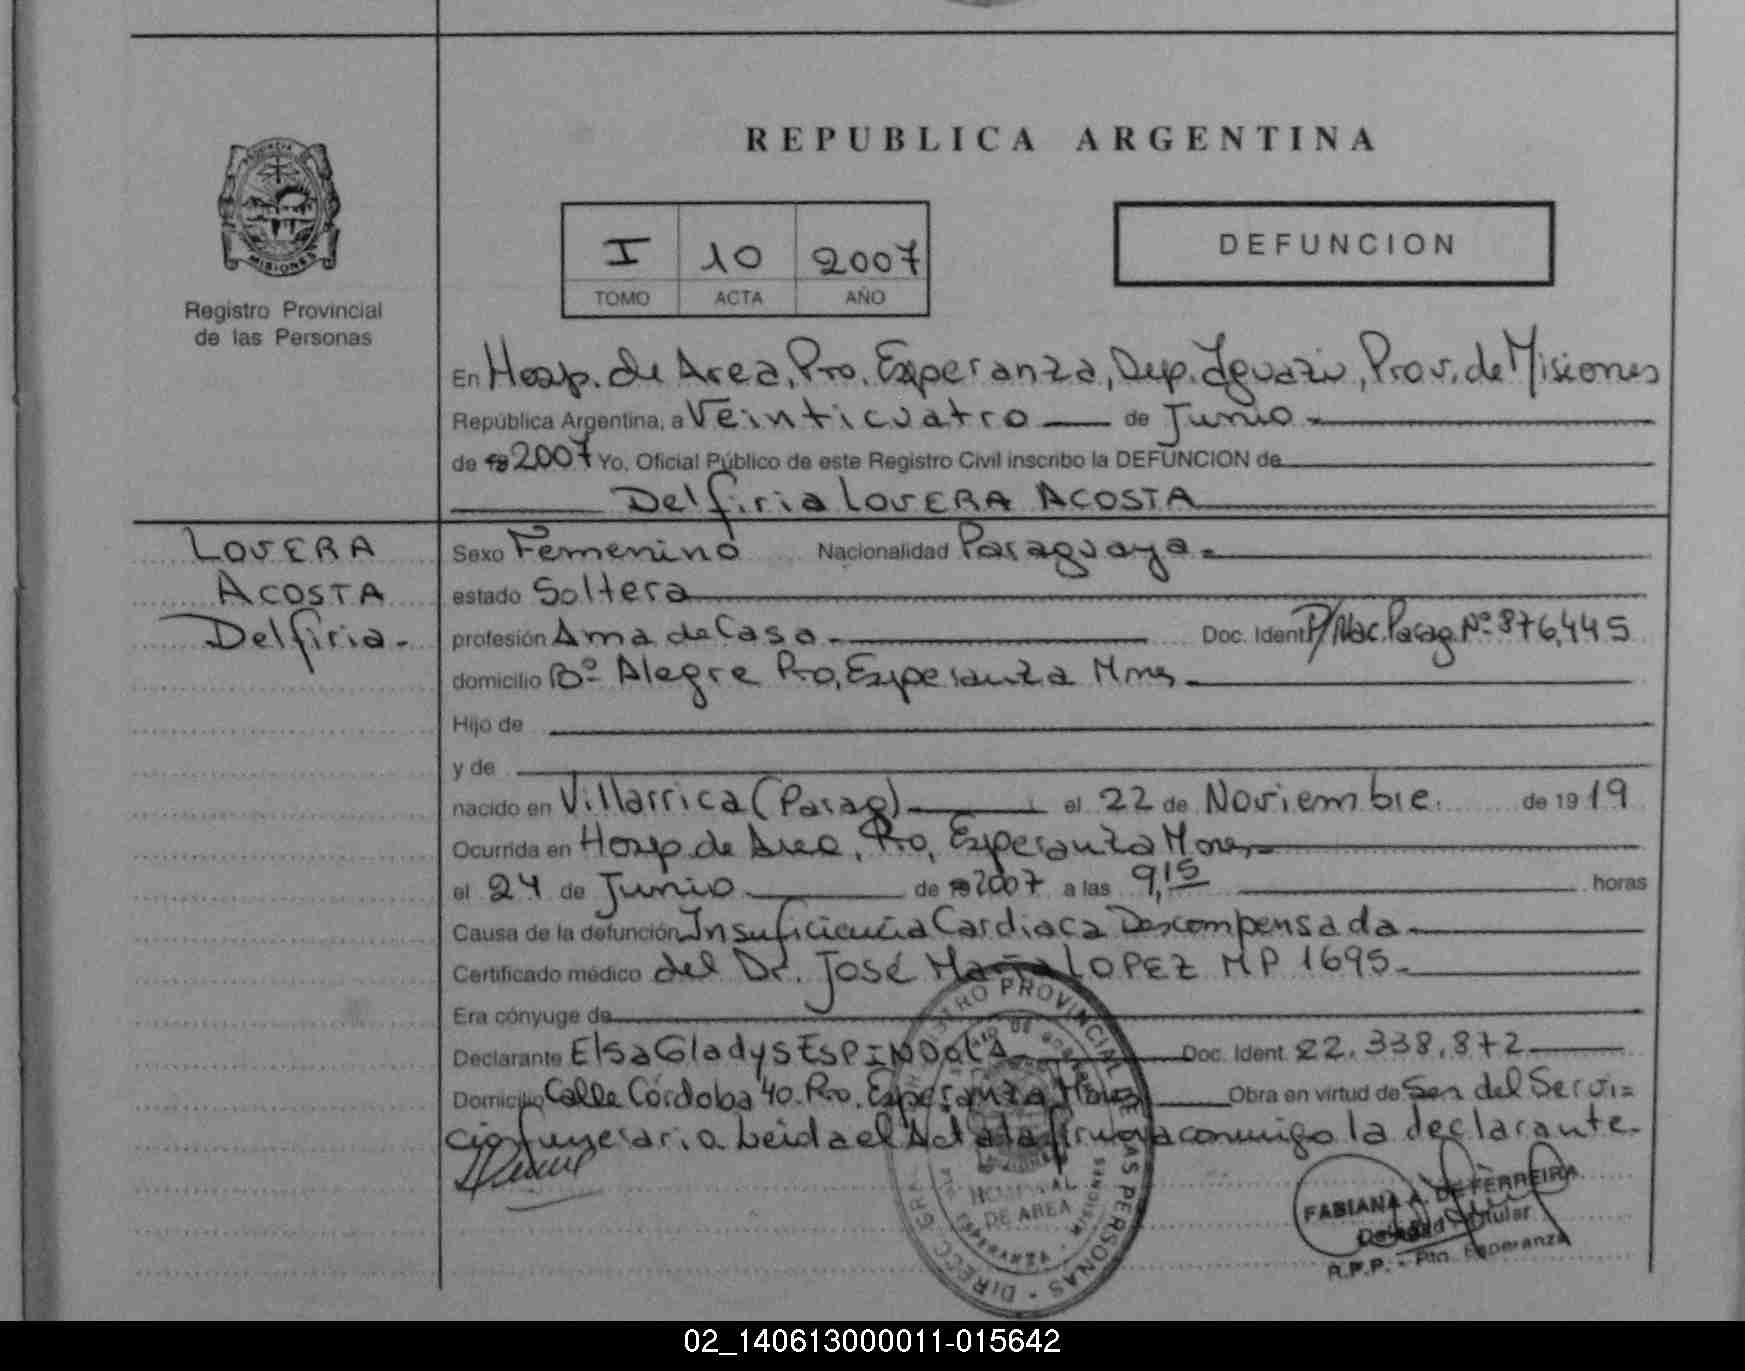 REPUBLICA ARGENTINA
PROVINCIA DE
MISIONES
Registro Provincial
de las Personas
I 10 2007
TOMO ACTA AÑO
DEFUNCION
En Hosp. de Area, Pto. Esperanza, Dep. Iguazú, Prov. de Misiones
República Argentina, a Veinticuatro de Junio
de 2007 Yo, Oficial Público de este Registro Civil inscribo la DEFUNCION de
Delfiria LOVERA ACOSTA
LOVERA
ACOSTA
Delfiria.-
Sexo Femenino Nacionalidad Paraguaya.-
estado Soltera
profesión Ama de Casa.- Doc. Ident. P/Nac. Parag. Nº 876,445
domicilio Bº Alegre Pto. Esperanza Mnes
Hijo de
y de
nacido en Villarrica (Parag) el 22 de Noviembre. de 19 19
Ocurrida en Hosp. de Area, Pto. Esperanza Mnes
el 24 de Junio de 2007 a las 9,15 horas
Causa de la defunción Insuficiencia Cardiaca Descompensada.
Certificado médico del Dr. José María LOPEZ MP 1695.-
Era cónyuge de
Declarante Elsa Gladys ESPINDOLA Doc. Ident. 22.338.872
Domicilio Calle Córdoba 40. Pto. Esperanza Mnes Obra en virtud de Ser del Servi=
cio funerario. Leida el Acta la firma conmigo la declarante.
REGISTRO PROVINCIAL DE LAS PERSONAS
HOSPITAL
DE AREA
FABIANA A. DE FERREIRA
Titular
R.P.P. - Pto. Esperanza
02_140613000011-015642